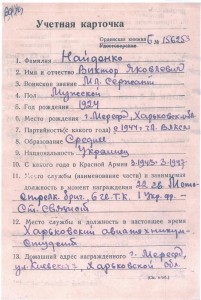 Учетная карточка
Орденская книжка
Удостоверение
Б № 156253
1. Фамилия Найденко
2. Имя и отчество Виктор Яковлевич
3. Воинское звание Мл. Сержант
4. Пол Мужской
5. Год рождения 1924
6. Место рождения г. Мерефа, Харьковск. обл
7. Партийность (с какого года) с 1944 г. ВЛКСМ
8. Образование Среднее
9. Национальность Украинец
10. С какого года в Красной Армии
11. Место службы (наименование части) и занимаемая
должность в момент награждения 22 гв. Мото-
стрелк. бриг., 6 гв. Т.К. 1 Укр. фр. -
Ст. связист
12. Место службы и должность в настоящее время
Харьковский авиатехникум -
студент
13. Домашний адрес награжденного г. Мерефа,
ул. Киевская Харьковской обл.